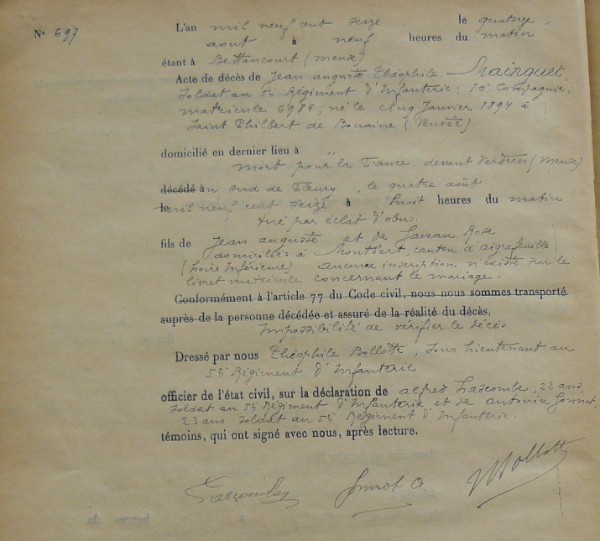 L'an mil neuf cent seize le quatorze
N° 697
aout à neuf heures du matin
étant à Bettancourt (meuse)
Acte de décès de Jean auguste Théophile Mainguet,
Soldat au 5è Régiment d'Infanterie; 10è Compagnie;
matricule 6986; né le cinq Janvier 1894 à
Saint Philbert de Bouaine (Vendée)
domicilié en dernier lieu à
mort pour la France devant Verdun (Meuse)
décédé au sud de Fleury, le quatre août
le mil neuf cent seize à huit heures du matin
tué par éclat d'obus.
fils de Jean auguste et de Rose
domiciliés à Montbert, canton d'aigrefeuille
(Loire Inférieure) aucune inscription n'existe sur le
livret matricule concernant le mariage.
Conformément à l'article 77 du Code civil, nous nous sommes transporté
auprès de la personne décédée et assuré de la réalité du décès,
Impossibilité de vérifier le décès
Dressé par nous Théophile Bollotte, Sous Lieutenant au
5è Régiment d'Infanterie
officier de l'état civil, sur la déclaration de alfred Lascombe, 22 ans
soldat au 5è Régiment d'Infanterie et de Antonin
23 ans soldat au 5è Régiment d'Infanterie.
témoins, qui ont signé avec nous, après lecture.